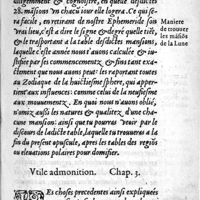 diligemment & cognoistre, en quelle desdictes
28. mãsions ẽn chacũ iour elle logera. Ce qui se-
ra facile, en retirant de nostre Ephemeride son
vrai lieu, c'est a dire le signe & degré quelle tiẽt,
& le trasportant a la table desdictes mansions,
laquelle est ceste année nous l'auõs calculée & iu-
stifiée par ses commencements, & fins tant exa-
ctement que nous auons peut: les rapportants tous
au Zodiaque de la huictiesme sphere, qui appar-
tient aux influences: comme celui de la neufuiesme
aux mouuements. En quoi nous n'auons obmis,
quelles sont aussi les natures & qualitez d'une cha-
cune mansion: ainsi que tu pourras veoir par le
discours de ladicte table, laquelle tu trouueras a la
fin du present opuscule, apres les tables des regiõs
ou eleuations polaires pour domifier.
Maniere
de trouuer
les mãsiõs
de la Lune
Vtile admonition. Chap. 3.
Es choses precedentes ainsi expliquées